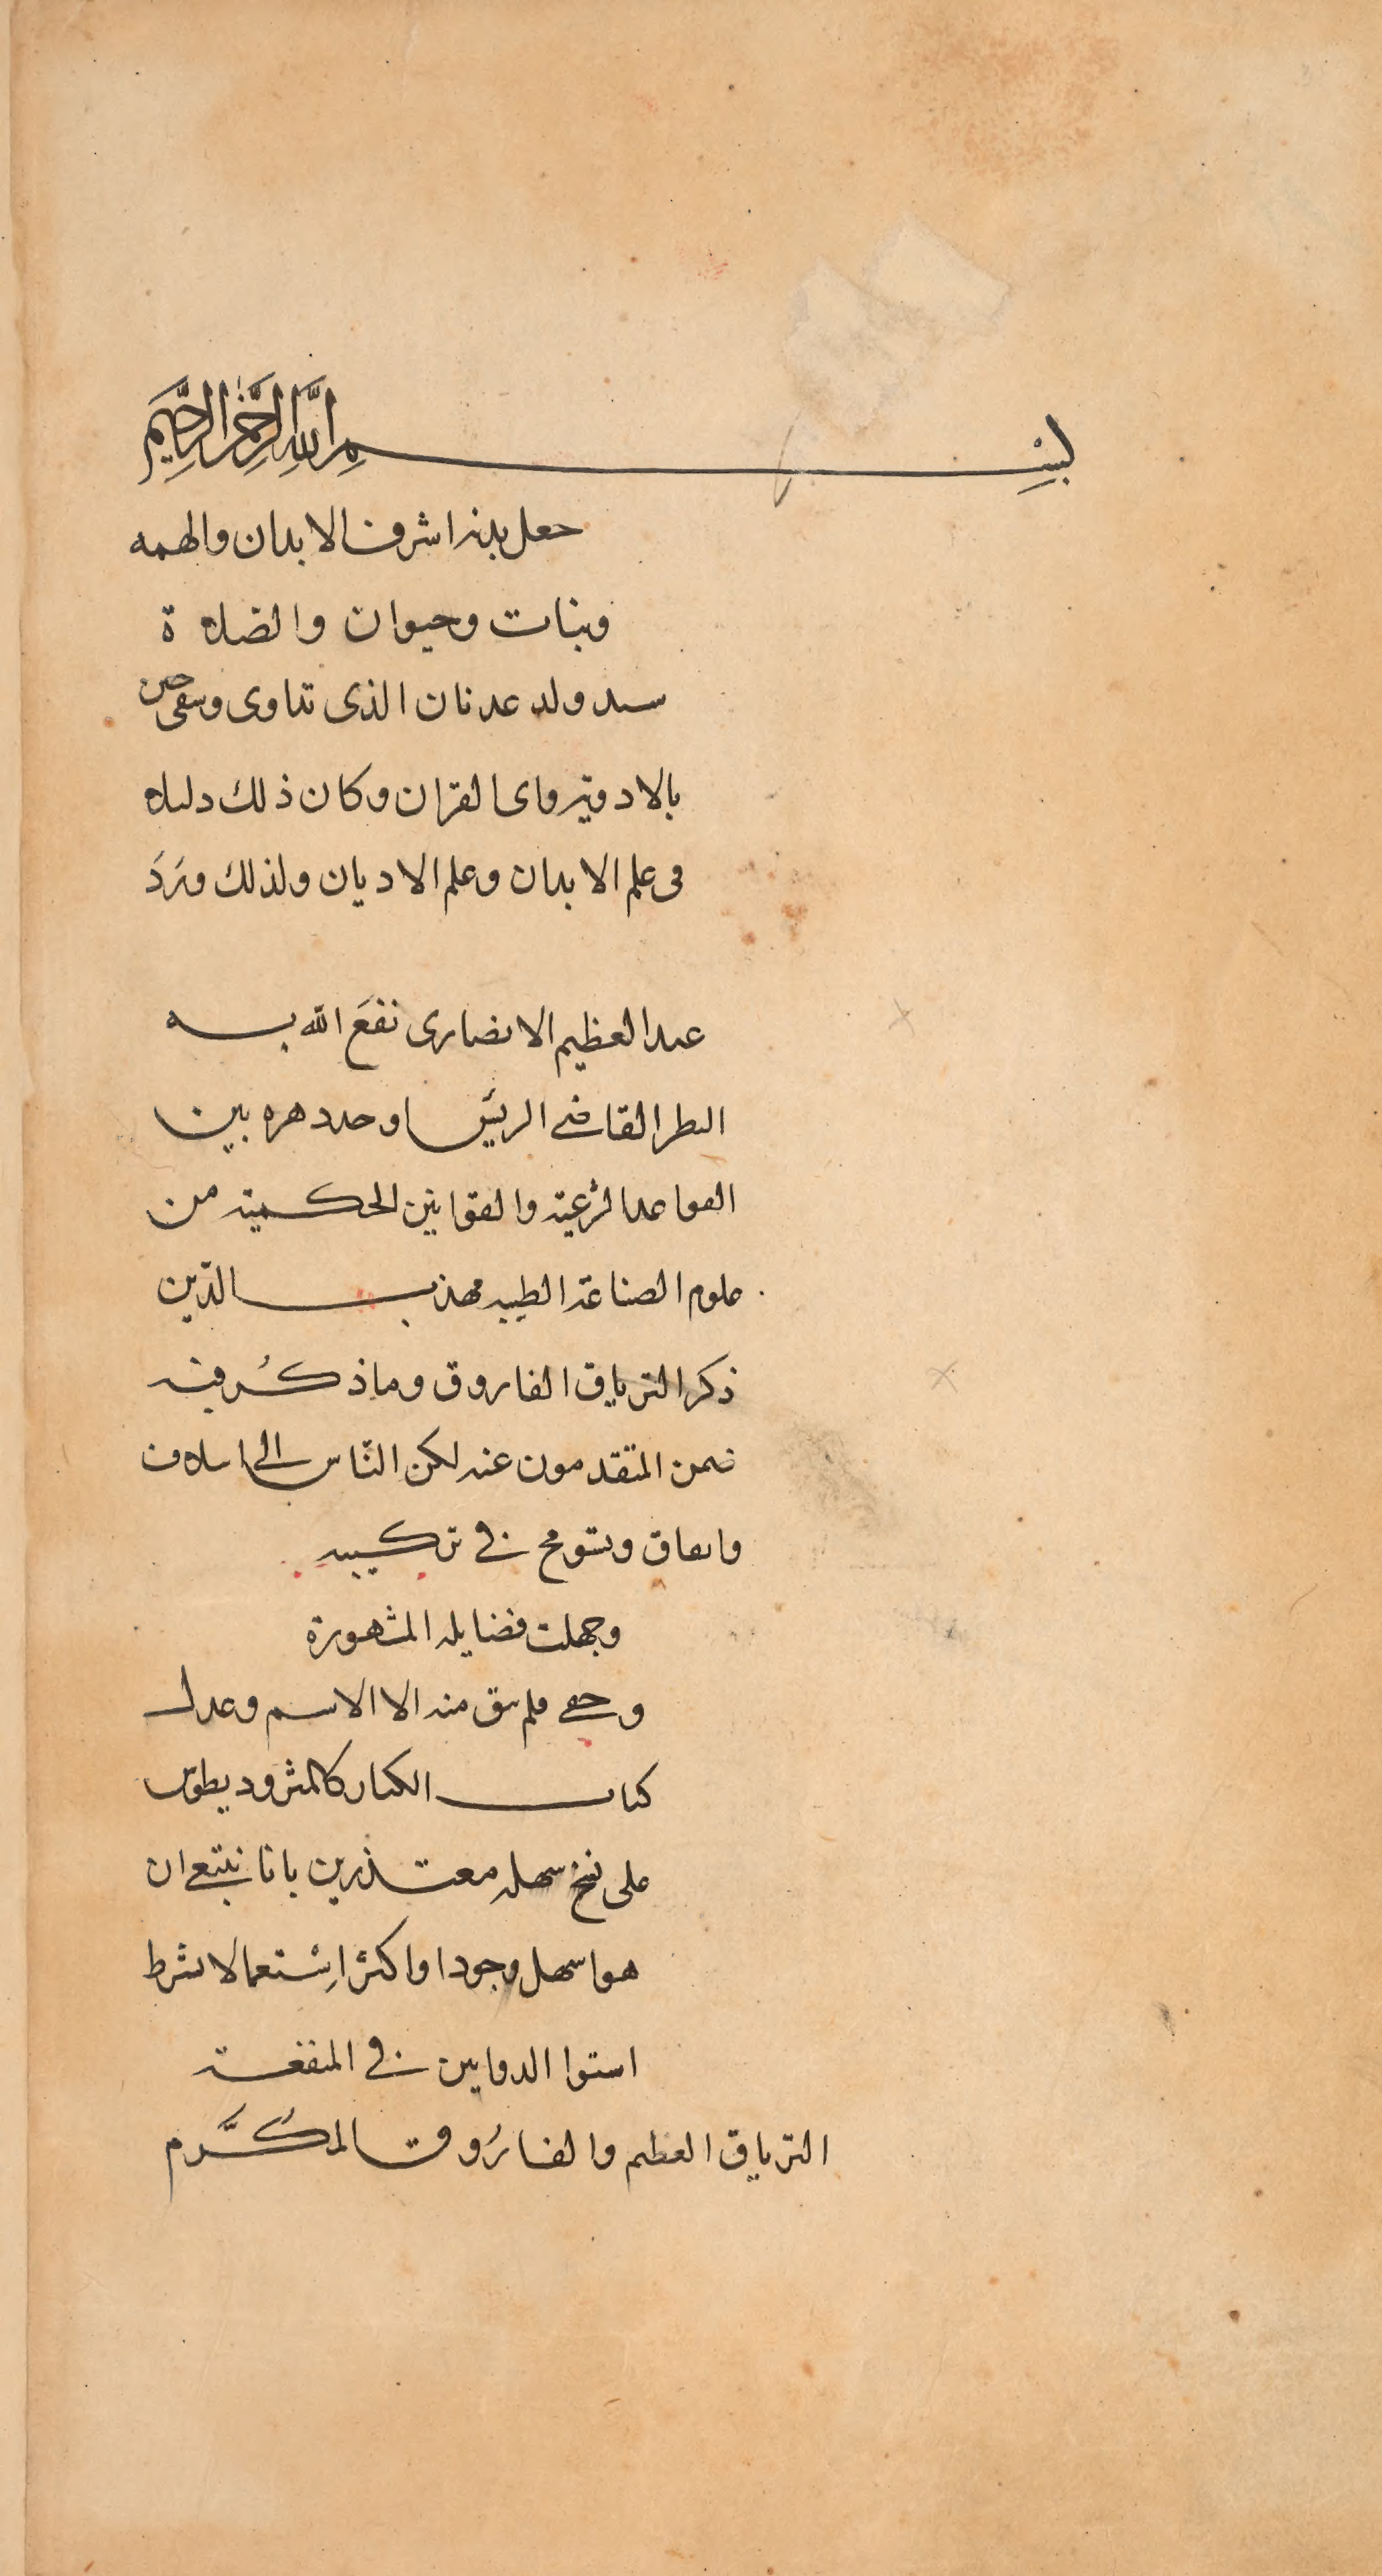 بسم الله الرحمن الرحيم
جعل بدنه اشرف الابدان والهمه
ونبات وحيوان والصلاة
سيد ولد عدنان الذى تداوى وسقى حين
بالادويه وباى القران وكان ذلك دليلا
فى علم الابدان وعلم الاديان ولذلك ورد
عبد العظيم الانصارى نفع الله به
القاضى الرئيس اوحد دهره بين
القواعد الشرعية والقوانين الحكمية من
علوم الصناعة الطبيه مهذب الدين
ذكر الترياق الفاروق وما ذكر فيه
المتقدمون عنه لكن الناس الى اسلاف
فى تركيبه
وجهلت فضايله المشهورة
فلم يبق منه الا الاسم وعدل
الكبار كالمثروديطوس
على نسخ سهله معتذرين بانا نبتغى ان
هو اسهل وجودا واكثر استعمالا بشرط
استوا الدوايين فى المنفعة
الترياق العظيم والفاروق المكرم